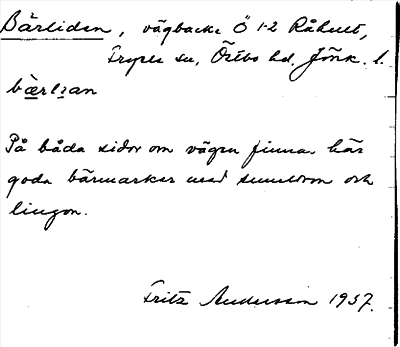 Bärliden, vägbacke Ö 1-2 Råhult,
Fryele sn, Östbo hd, Jönk. l.
På båda sidor om vägen finnas här
goda bärmarker med smultron och
lingon.
Fritz Andersson 1937.